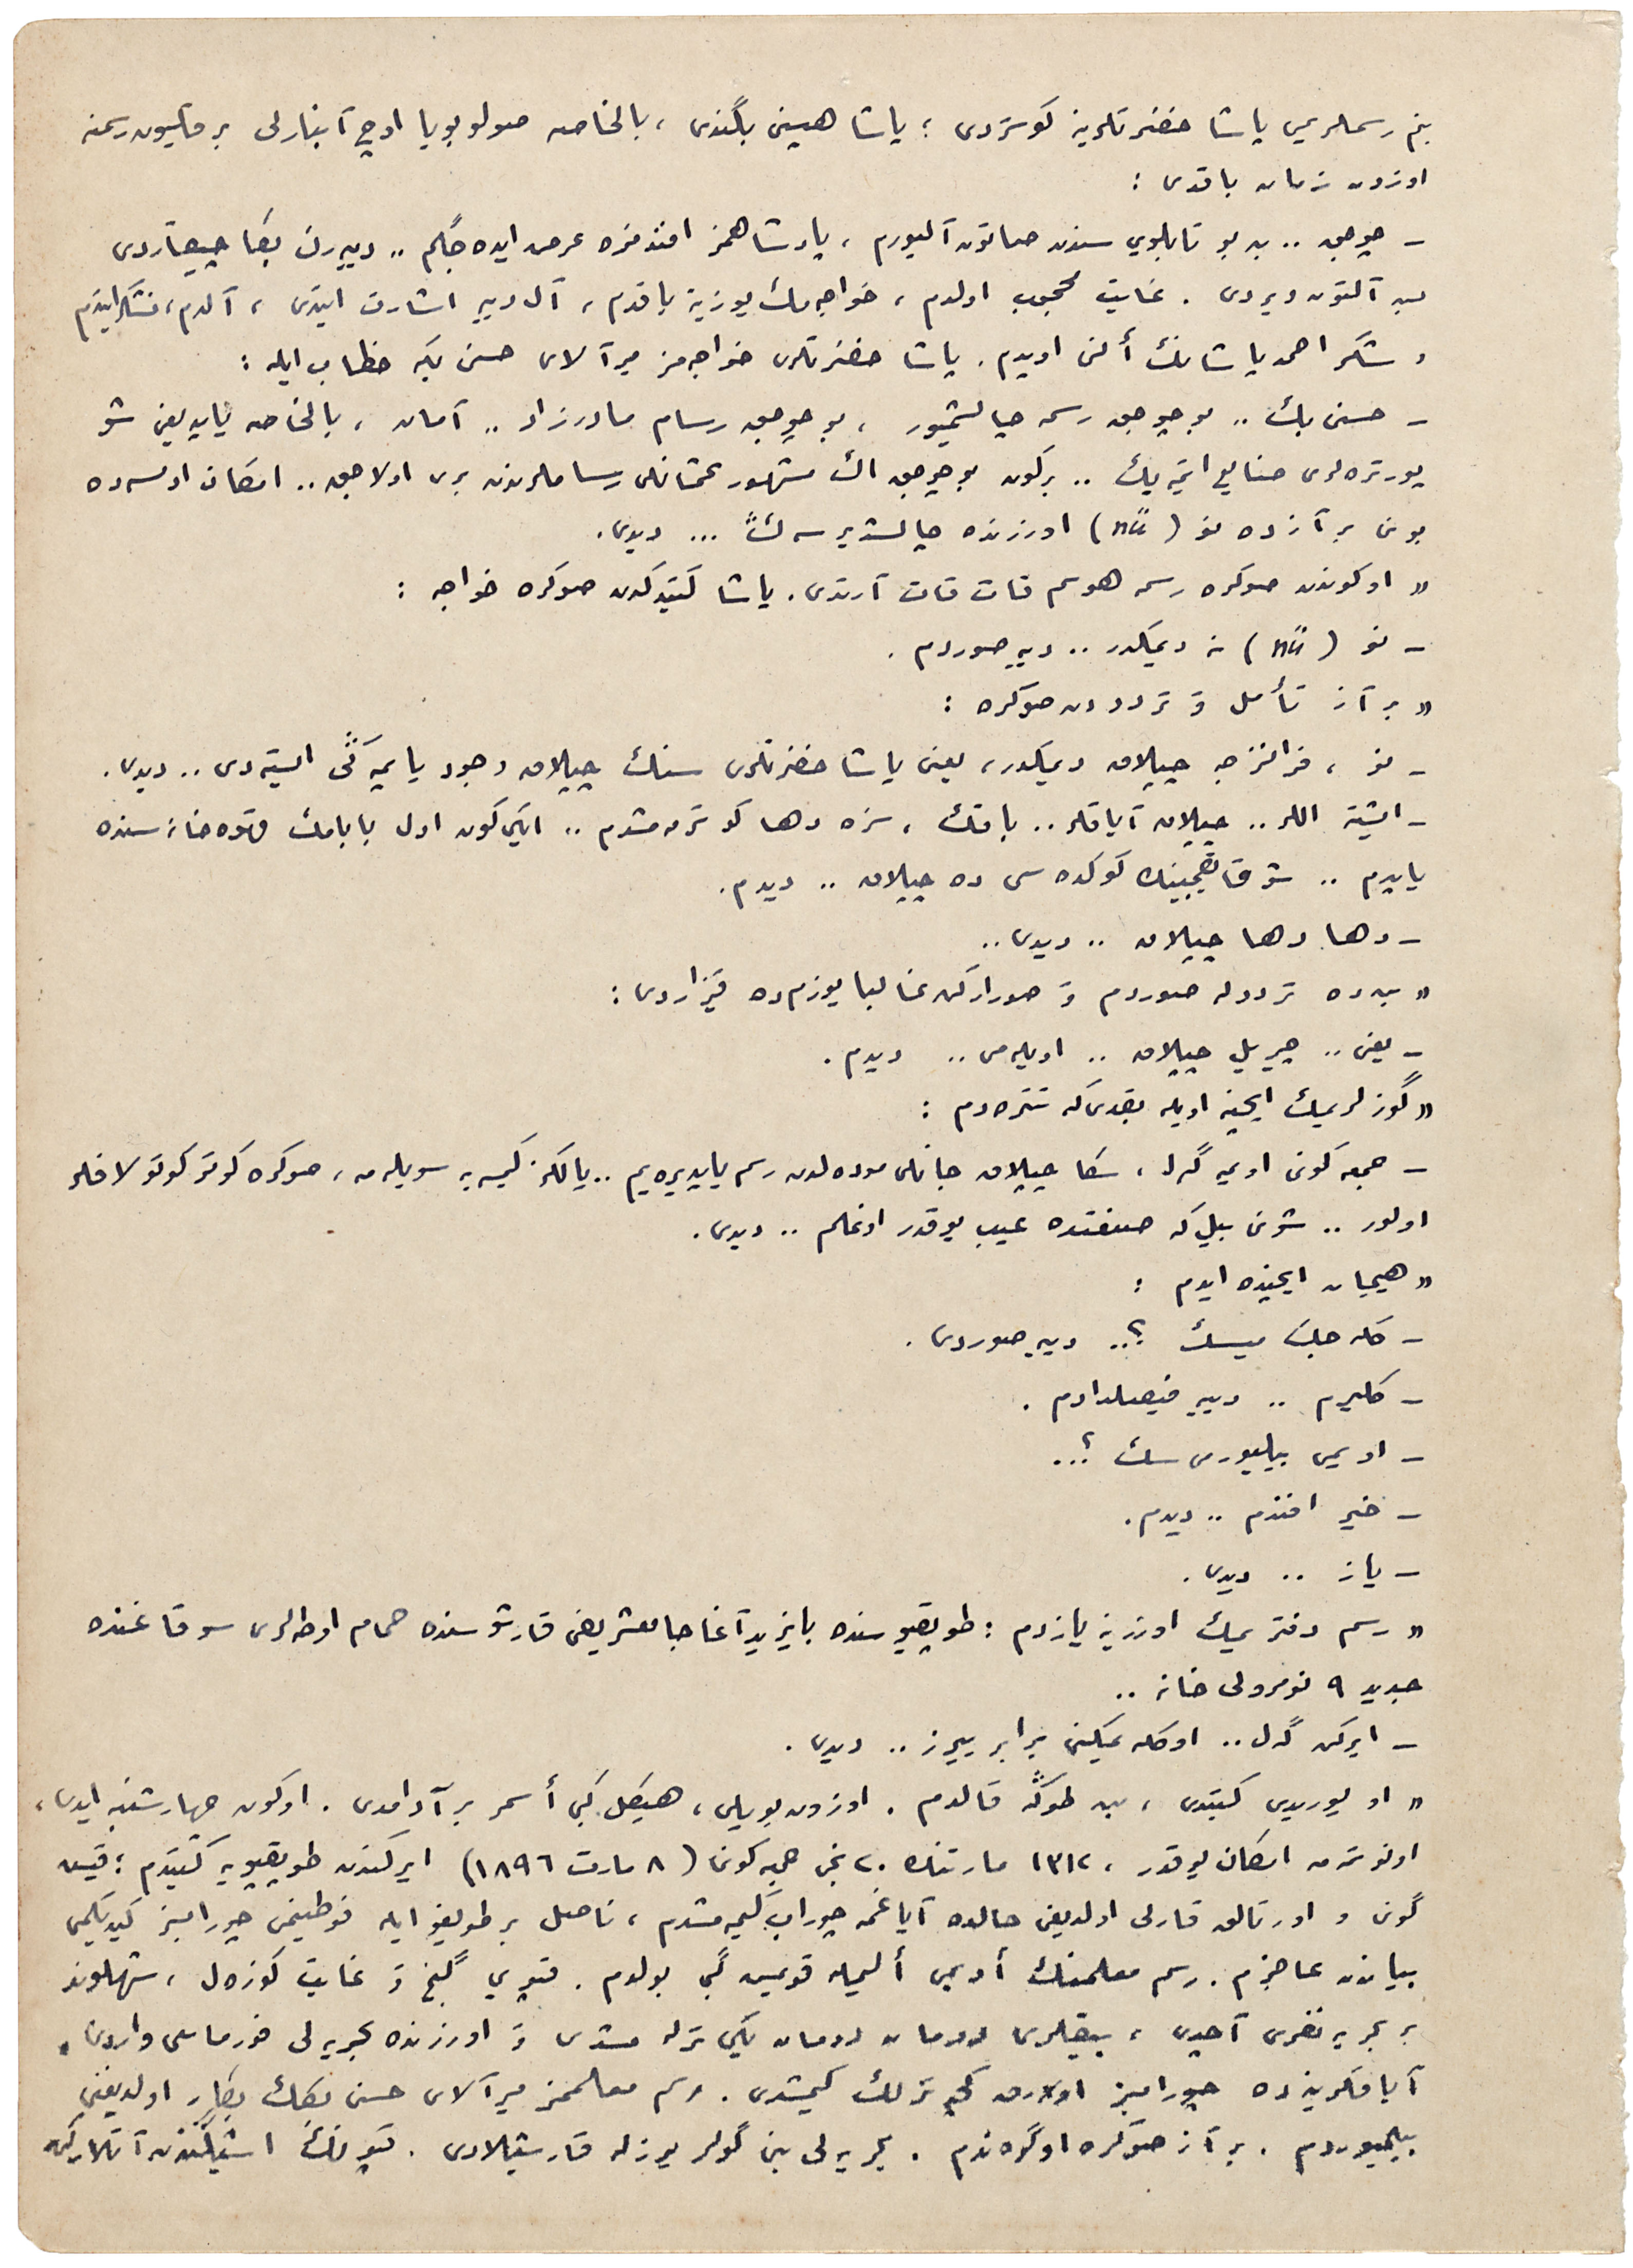 بنم رسملریمی پاشا حضرتلرینه کوستردی ؛ پاشا هپسنی بگندی ، بالخاصه صولو بویا اوچ آیناری بر قالیون رسمنه
اوزون زمان باقدی :
ـ چوجق .. بن بو تابلویی سندن صاتون آلیورم ، پادشاهمز افندمزه عرض ایده جگم .. دییه رك بڭا چیقاردی
بش آلتون ویردی . غایت محجوب اولدم ، خواجه مك یوزینه باقدم ، آل دییه اشارت ایتدی ، آلدم ، تشکر ایتدم
و شکر احمد پاشانك ألنی اوپدم . پاشا حضرتلری خواجه مز میرآلای حسن بكه خطاب ایله :
ـ حسن بك .. بو چوجق رسمه چالیشمیور ، بو چوجق رسام مادرزاد .. آمان ، بالخاصه یاپدیغی شو
پورتره لری ضایع ایتمه یك .. برکون بو چوجق اك مشهور عثمانلی رساملرندن بری اولاجق .. امکان اولسه ده
بونی بر آز ده نو (nü) اوزرنده چالیشدیرسه ك ... دیدی .
« اوکوندن صوکره رسمه هوسم قات قات آرتدی . پاشا کیتدکدن صوکره خواجه :
ـ نو (nü) نه دیمکدر .. دییه صوردم .
« بر آز تأمل و ترددن صوکره :
ـ نو ، فرانزجه چیپلاق دیمکدر ، یعنی پاشا حضرتلری سنك چیپلاق وجود یاپمه ڭی ایسته دی .. دیدی .
ـ ایشته اللر .. چیپلاق آیاقلر .. باقك ، سزه دها کوسترمه مشدم .. ایکی کون اول بابامك قهوه خانه سنده
یاپدم .. شو قایقجینك کوکده سی ده چیپلاق .. دیدم .
ـ دها دها چیپلاق .. دیدی ..
« بن ده تردد له صوردم و صورارکن غالبا یوزم ده قیزاردی :
ـ یعنی .. چیریل چیپلاق .. اویله می .. دیدم .
« گوزلریمك ایچنه اویله بقدی که تتره دم :
ـ جمعه کونی اویمه گل ، سڭا چیپلاق جانلی موده لدن رسم یاپدیره یم .. یالکز کیمسه یه سویله مه ، صوکره کوتو کوتو لافلر
اولور .. شونی بیل که صنعتده عیب یوقدر اوغلم .. دیدی .
« هیجان ایچنده ایدم :
ـ کله جك میسك ؟.. دییه صوردی .
ـ کلیرم .. دییه فیصیلدادم .
ـ اویمی بیلیورمی سك ؟..
ـ خیر افندم .. دیدم .
ـ یاز .. دیدی .
« رسم دفتریمك اوزرینه یازدم : طوپقپوسنده بایزید آغا جامع شریفی قارشوسنده حمام اوطه لری سوقاغنده
جدید ٩ نومرولی خانه ..
ـ ایرکن گل .. اوکله یمکنی برابر ییرز .. دیدی .
« او یوریدی کیتدی ، بن طوڭه قالدم . اوزون بویلی ، هیکل کبی أسمر بر آدامدی . اوکون چهارشنبه ایدی ،
اونوتمه مه امکان یوقدر ، ١٣١٢ مارتنك ٢٠ نجی جمعه کونی (٨ مارت ١٨٩٦) ایرکندن طوپقپویه کیتدم ؛ قیش
گونی و اورتالق قارلی اولدیغی حالده آیاغمه چوراب کیمه مشدم ، ناصل بر طویغو ایله فوطینمی چورابسز کیدیکمی
بیاندن عاجزم . رسم معلمنك أوینی ألیمله قویمش گبی بولدم . قپویی گنج و غایت کوزه ل ، شهلوند
بر بحریه نفری آچدی ، بیقلری دومان دومان یکی ترله مشدی و اوزرنده بحریه لی فورماسی واردی .
آیاقلرینده چورابسز اولارق کچه ترلك کیمشدی . رسم معلممز میرآلای حسن بكك بکار اولدیغنی
بیلمیوردم . بر آز صوکره اوگره ندم . بحریه لی بنی گولر یوزله قارشیلادی . قپونك اشیکندن آتلارکن